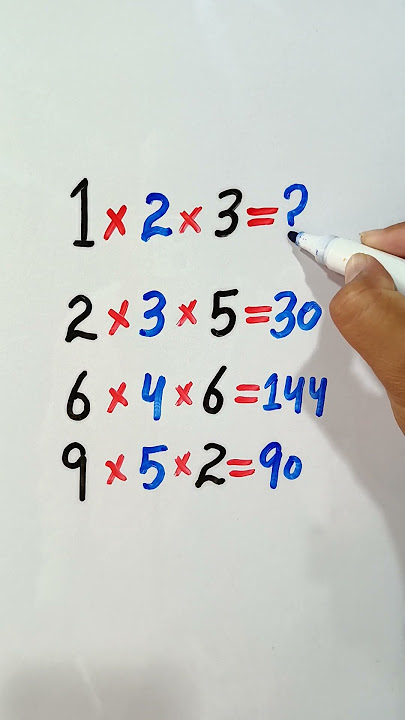 1 × 2 × 3 = ?
2 × 3 × 5 = 30
6 × 4 × 6 = 144
9 × 5 × 2 = 90